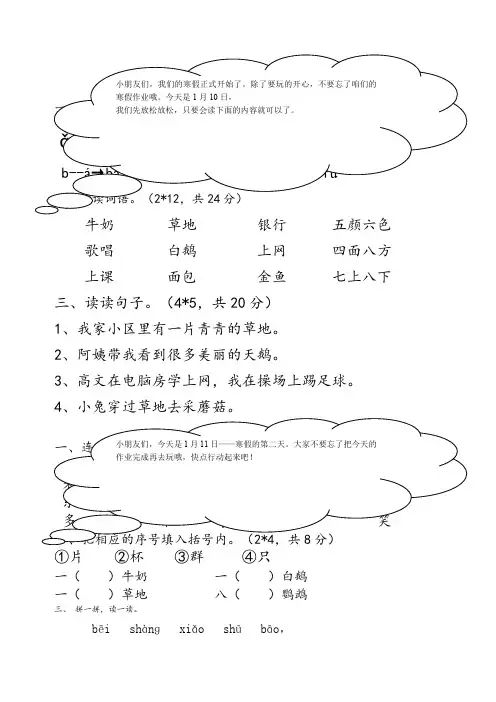 小朋友们，我们的寒假正式开始了。除了要玩的开心，不要忘了咱们的
寒假作业哦。今天是1月10日，
我们先放松放松，只要会读下面的内容就可以了。
b--á→b
读词语。（2*12，共24分）
牛奶 草地 银行 五颜六色
歌唱 白鹅 上网 四面八方
上课 面包 金鱼 七上八下
三、读读句子。（4*5，共20分）
1、我家小区里有一片青青的草地。
2、阿姨带我看到很多美丽的天鹅。
3、高文在电脑房学上网，我在操场上踢足球。
4、小兔穿过草地去采蘑菇。
小朋友们，今天是1月11日——寒假的第二天。大家不要忘了把今天的
作业完成再去玩哦，快点行动起来吧！
一、连
多 笑
把相应的序号填入括号内。（2*4，共8分）
①片 ②杯 ③群 ④只
一（ ）牛奶 一（ ）白鹅
一（ ）草地 八（ ）鹦鹉
三、 拼一拼，读一读。
bēi shàng xiǎo shū bāo，